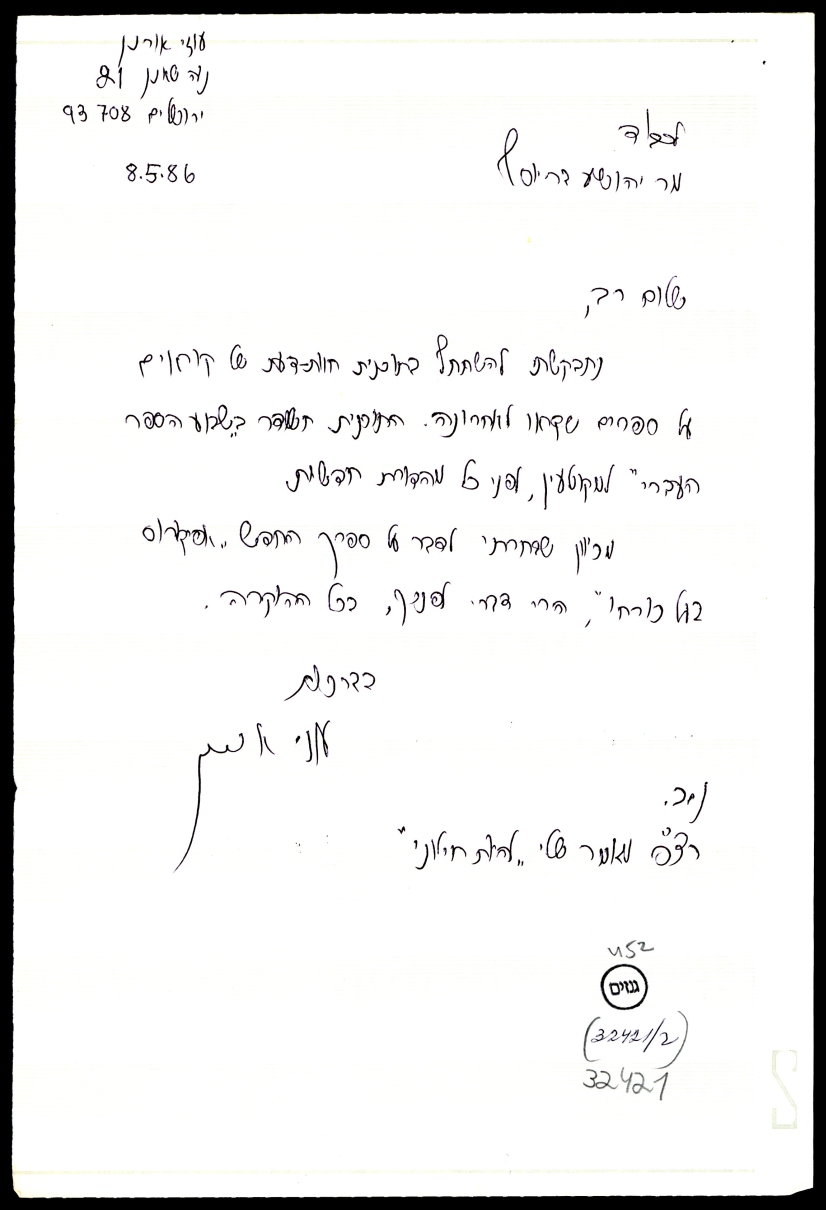 עוזי אורנן
נוה שאנן 21
ירושלים 93 708
8.5.86
לכבוד
מר יהושע בר יוסף
שלום רב,
נתבקשתי להשתתף בתוכנית חוות-דעת של קוראים
על ספרים שקראו לאחרונה. התוכנית תשודר ב„שבוע הספר
העברי" למקוטעין, לפני כל מהדורת חדשות
מכיוון שבחרתי לדבר על ספרך החפשי „אפיקורוס
בעל כורחו", הרי דברי לפניך, בכל ההוקרה.
בברכות
עוזי אורנן
נ.ב.
רצ"ב מאמר שלי „להיות חילוני"
452
גנזים
(32421/2)
32421